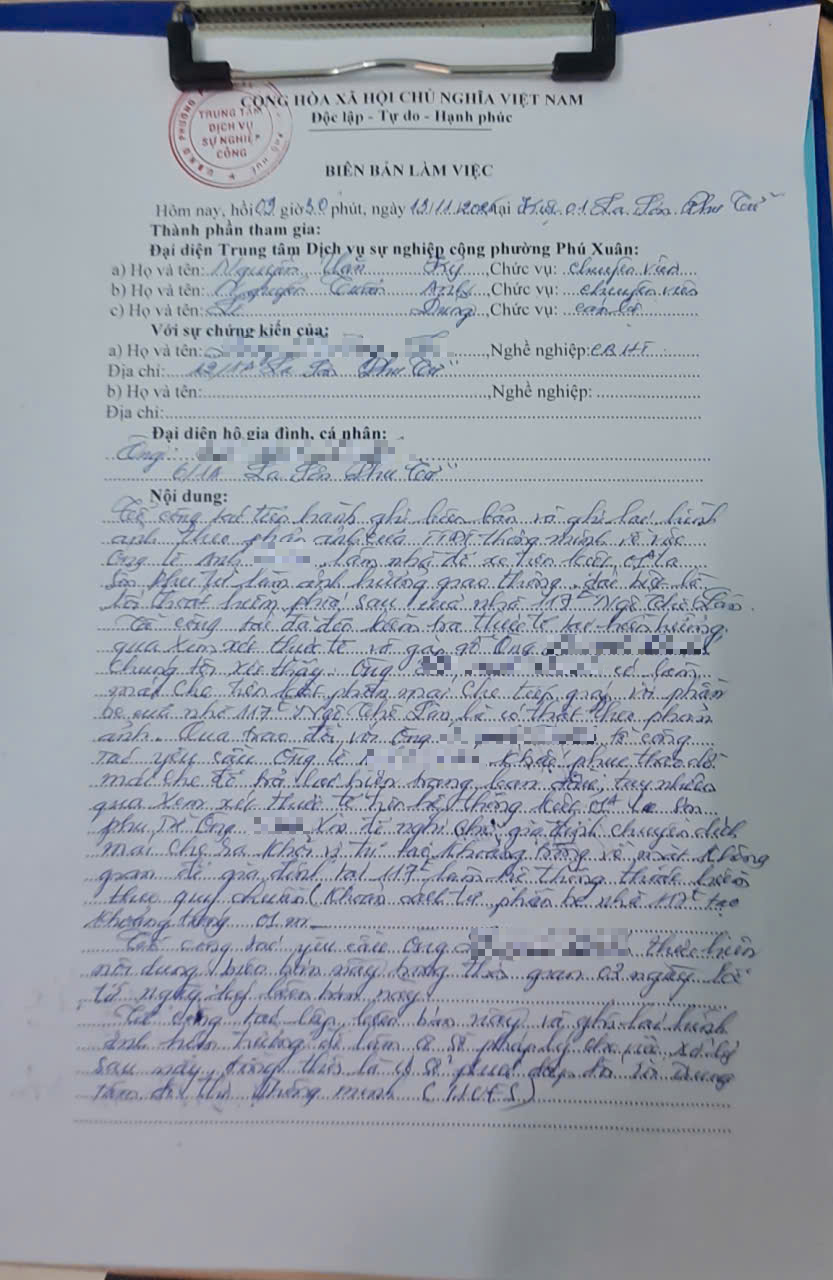 CỘNG HÒA XÃ HỘI CHỦ NGHĨA VIỆT NAM
Độc lập - Tự do - Hạnh phúc
TRUNG TÂM
DỊCH VỤ
SỰ NGHIỆP
CÔNG
BIÊN BẢN LÀM VIỆC
Hôm nay, hồi 09 giờ 30 phút, ngày tại Kiệt 01 La Sơn Phu Tử
Thành phần tham gia:
Đại diện Trung tâm Dịch vụ sự nghiệp công phường Phú Xuân:
a) Họ và tên: Nguyễn Văn Kỳ, Chức vụ: chuyên viên
b) Họ và tên: Nguyễn Tuấn Anh, Chức vụ: chuyên viên
c) Họ và tên: Lê Dung, Chức vụ: cán bộ
Với sự chứng kiến của:
a) Họ và tên: , Nghề nghiệp: CBHT
Địa chỉ: La Sơn Phu Tử
b) Họ và tên: , Nghề nghiệp:
Địa chỉ:
Đại diện hộ gia đình, cá nhân:
Ông:
6/1A La Sơn Phu Tử
Nội dung:
Tổ công tác tiến hành ghi biên bản và ghi lại hình
ảnh theo phản ánh của thông minh về việc
Ông Lê Anh làm nhà để xe trên kiệt 01 La
Sơn Phu Tử làm ảnh hưởng giao thông, đặc biệt là
lối thoát hiểm phía sau của nhà 117C Ngô Thế Lân.
Tổ công tác đã đến kiểm tra thực tế tại hiện trường,
qua xem xét thực tế và gặp gỡ Ông
Chúng tôi xét thấy: Ông có làm
mái che trên kiệt phần mái che tiếp giáp với phần
bê của nhà 117C Ngô Thế Lân là có thật theo phản
ánh. Qua trao đổi với Ông tổ công
tác yêu cầu Ông Lê khắc phục tháo dỡ
mái che để trả lại hiện trạng ban đầu, tuy nhiên
qua xem xét thực tế trên hệ thống kiệt 01 La Sơn
Phu Tử Ông xin đề nghị cho gia đình chuyển dịch
mái che ra khỏi vị trí tạo khoảng trống về mặt không
gian để gia đình tại 117C làm hệ thống thoát hiểm
theo quy chuẩn (Khoảng cách từ phần bê nhà 117C tạo
khoảng trống 01 m
Tổ công tác yêu cầu Ông thực hiện
nội dung biên bản này trong thời gian ngày kể
từ ngày ký biên bản này
Tổ công tác lập biên bản này và ghi lại hình
ảnh hiện trường để làm cơ sở pháp lý cho việc xử lý
sau này, đồng thời là cơ sở phúc đáp đến Trung
tâm đô thị thông minh (HUEIS)